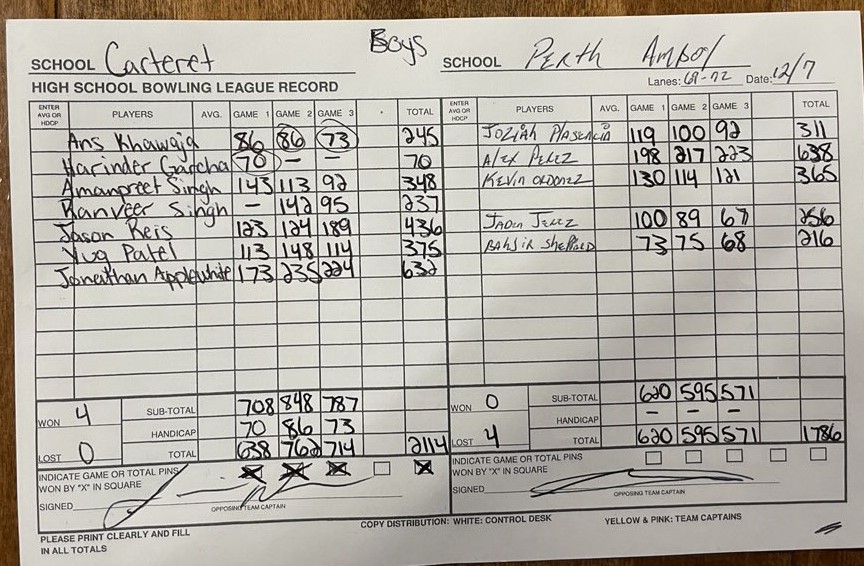 Boys
SCHOOL Carteret SCHOOL Perth Amboy
HIGH SCHOOL BOWLING LEAGUE RECORD Lanes: 69-72 Date: 12/7
ENTER AVG OR HDCP PLAYERS AVG. GAME 1 GAME 2 GAME 3 TOTAL ENTER AVG OR HDCP PLAYERS AVG. GAME 1 GAME 2 GAME 3 TOTAL
Ans Khawaja 86 86 73 245 Joziah Plasencia 119 100 92 311
Harinder Garcha 70 - - 70 Alex Perez 198 217 223 638
Amanpreet Singh 143 113 92 348 Kevin Ordonez 130 114 121 365
Ranveer Singh - 142 95 237
Jason Reis 123 124 189 436 Jaden Jerez 100 89 67 256
Yug Patel 113 148 114 375 Bahsir Sheppard 73 75 68 216
Jonathan Applewhite 173 235 224 632
WON 4 SUB-TOTAL 708 848 787 WON 0 SUB-TOTAL 620 595 571
HANDICAP 70 86 73 HANDICAP - - -
LOST 0 TOTAL 638 762 714 2114 LOST 4 TOTAL 620 595 571 1786
INDICATE GAME OR TOTAL PINS WON BY "X" IN SQUARE X X X X INDICATE GAME OR TOTAL PINS WON BY "X" IN SQUARE
SIGNED SIGNED
OPPOSING TEAM CAPTAIN OPPOSING TEAM CAPTAIN
PLEASE PRINT CLEARLY AND FILL IN ALL TOTALS COPY DISTRIBUTION: WHITE: CONTROL DESK YELLOW & PINK: TEAM CAPTAINS